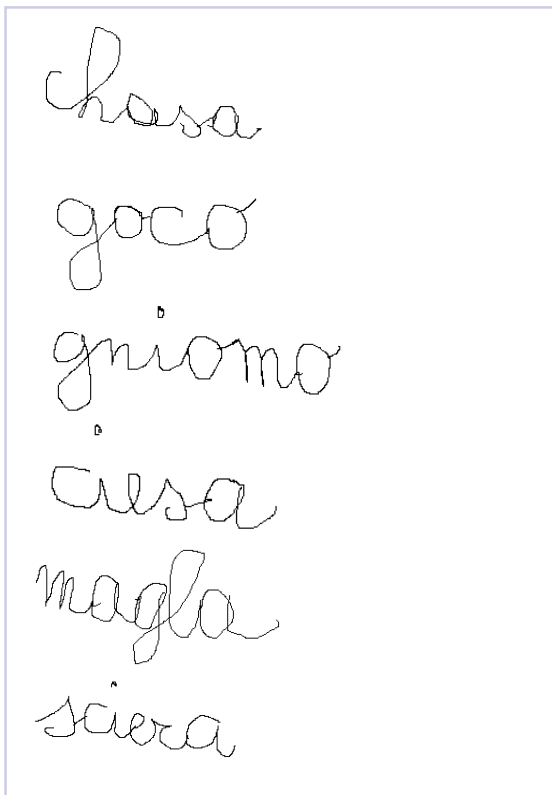 chasa
goco
gniomo
ciesa
magla
sciera